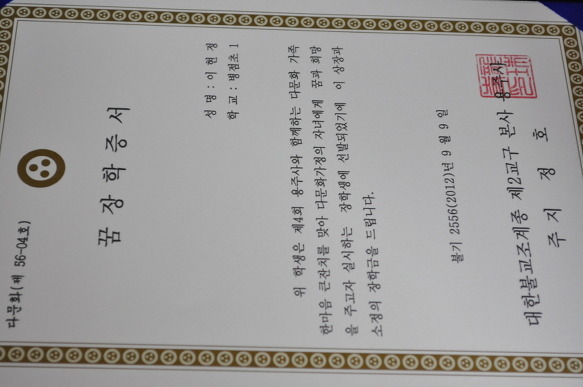 다문화(제 56-04호)
꿈 장 학 증 서
성 명 : 이 현 정
학 교 : 병점초 1
위 학생은 제4회 용주사와 함께하는 다문화 가족
한마음 큰잔치를 맞아 다문화가정의 자녀에게 꿈과 희망
을 주고자 실시하는 장학생에 선발되었기에 이 상장과
소정의 장학금을 드립니다.
불기 2556(2012)년 9 월 9 일
대한불교조계종 제2교구 본사 용주사
주 지 정 호